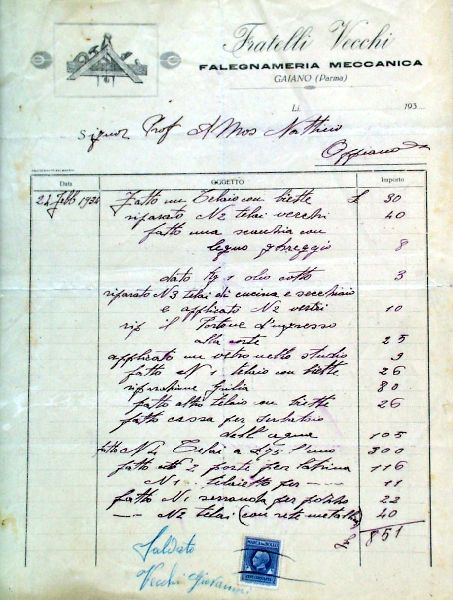 Fratelli Vecchi
FALEGNAMERIA MECCANICA
GAIANO (Parma)
Li 193
Signor Prof Amos Nattini
Oppiano
Data OGGETTO Importo
24 Febb 192 Fatto un Telaio con biette £ 30
riparato N2 telai vecchi 40
fatto una scanchia con
legno greggio 8
dato Kg 1 olio cotto 3
riparato N3 telai di cucina e secchiaio
e applicato N2 vetri 10
rip il Portone d'ingresso
alla corte 25
applicato un vetro nello studio 9
fatto N1 telaio con biette 26
riparazione 80
fatto altro telaio con biette 26
fatto cassa per serbatoio
dell'aqua 105
fatto N4 Telai a £75 l'uno 300
fatto 2 porte per latrina 116
N1 telaietto per — 11
fatto N1 serranda per 22
— N2 telai (con rete metallica) 40
£ 851
Saldato
Vecchi Giovanni